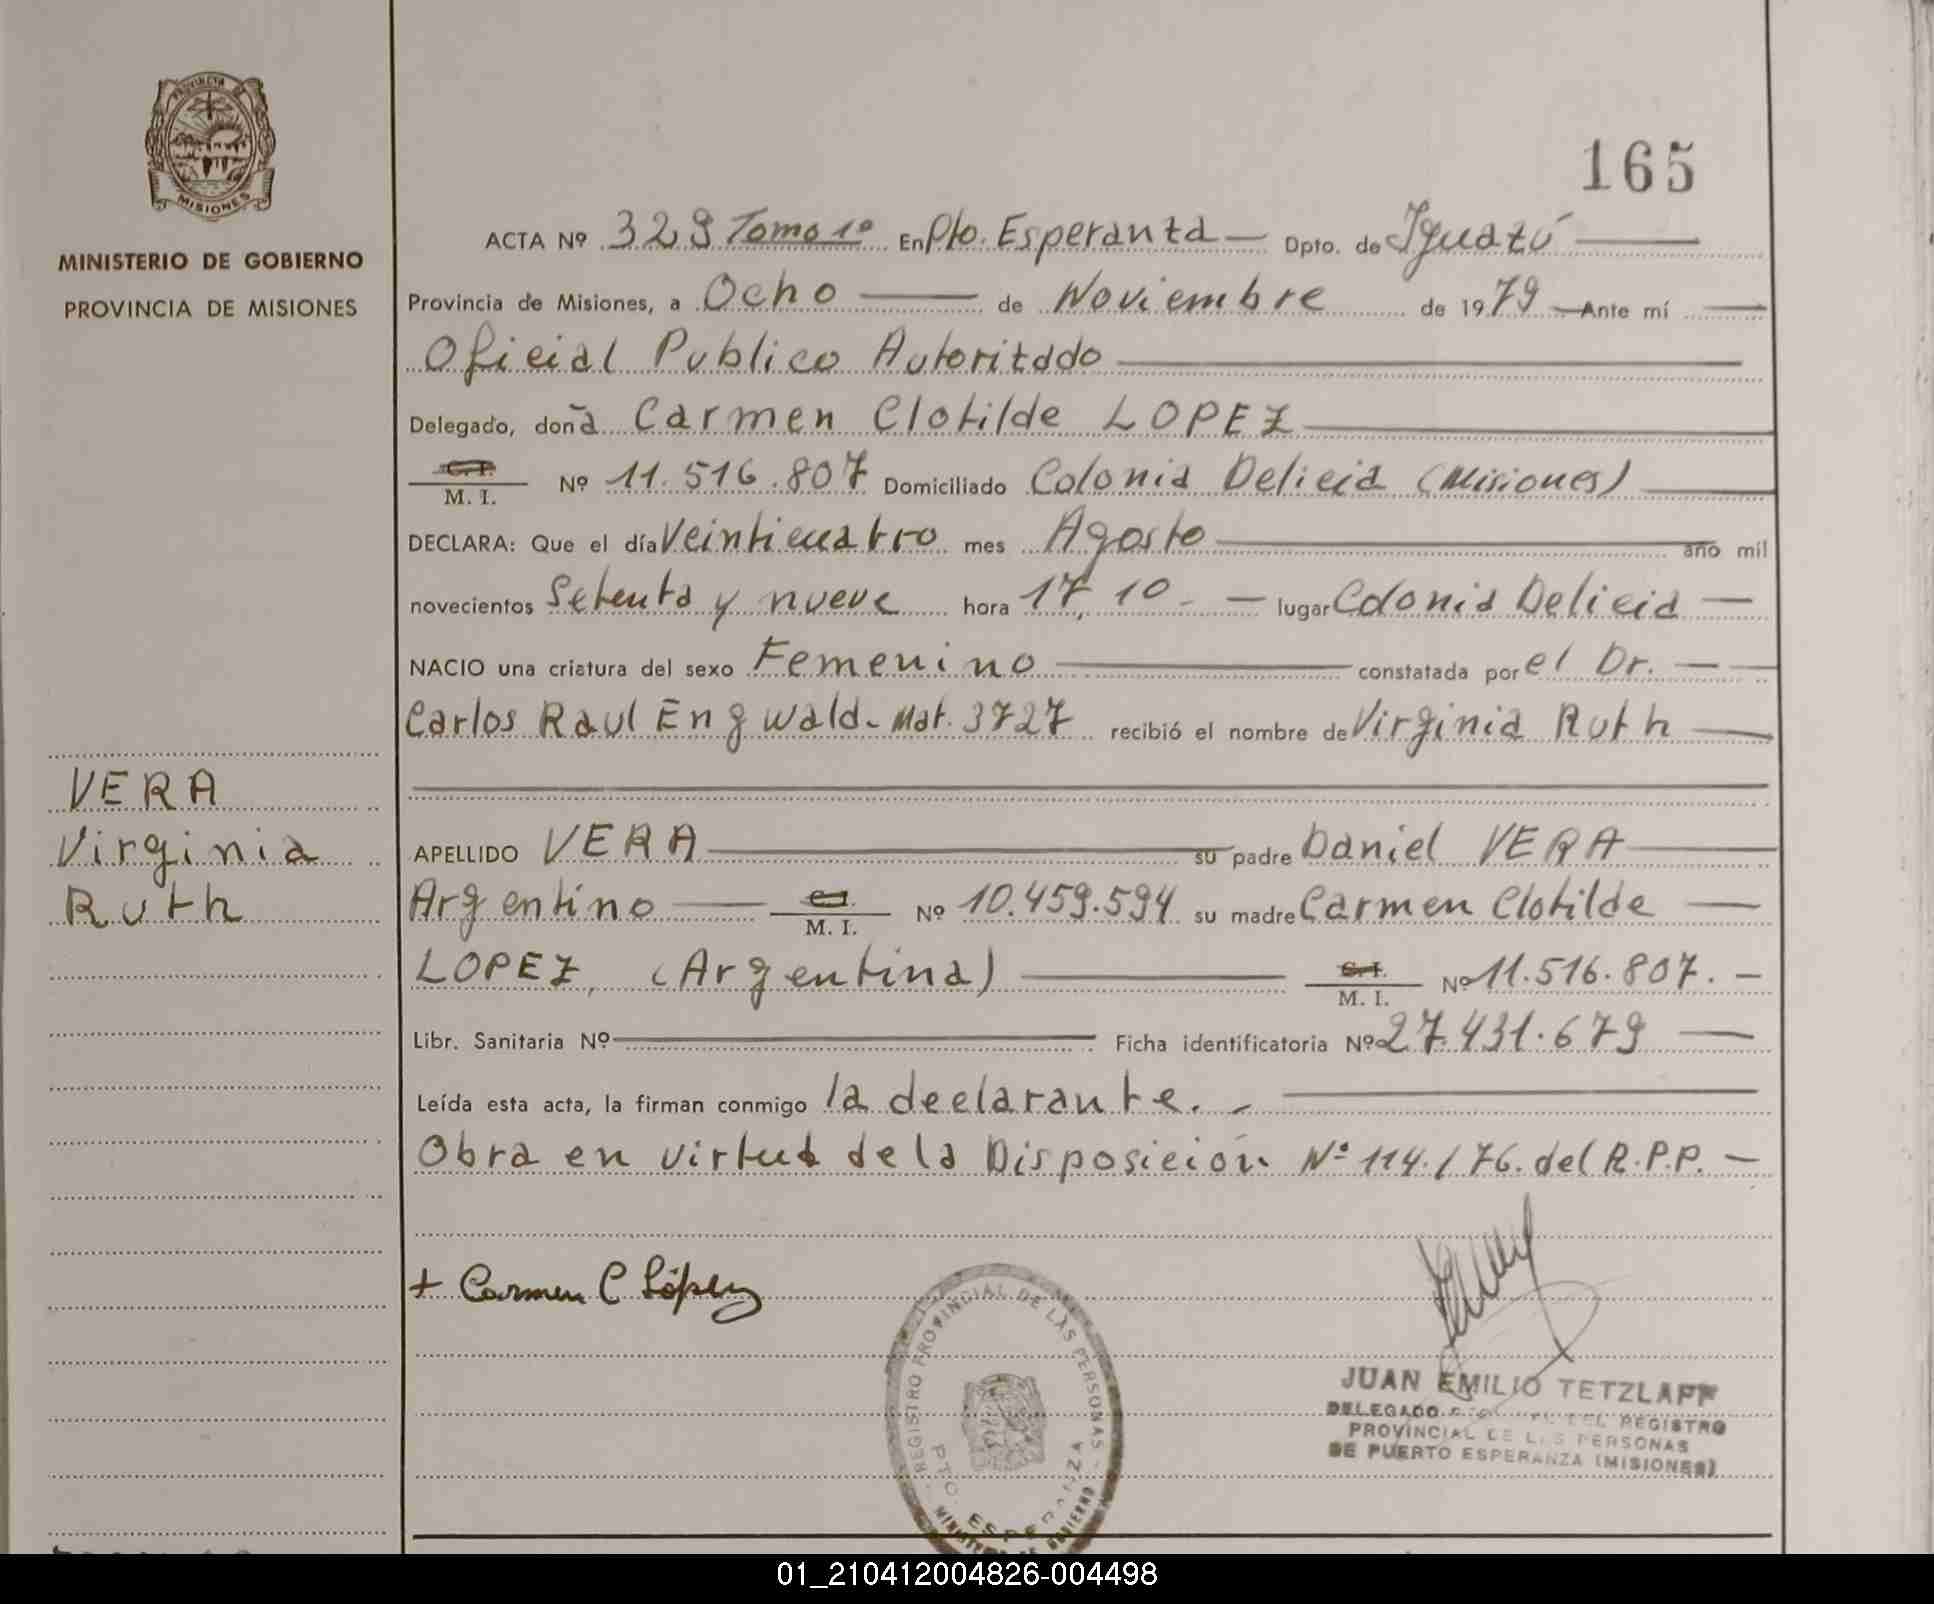 PROVINCIA DE
MISIONES
MINISTERIO DE GOBIERNO
PROVINCIA DE MISIONES
VERA
Virginia
Ruth
165
ACTA Nº 329 Tomo 1º En Pto. Esperanza — Dpto. de Iguazú —
Provincia de Misiones, a Ocho — de Noviembre de 1979 — Ante mí —
Oficial Publico Autorizado —
Delegado, doña Carmen Clotilde LOPEZ —
C. I.
M. I. Nº 11.516.807 Domiciliado Colonia Delicia (Misiones) —
DECLARA: Que el día Veinticuatro mes Agosto — año mil
novecientos Setenta y nueve hora 17,10 - — lugar Colonia Delicia —
NACIO una criatura del sexo Femenino — constatada por el Dr. —
Carlos Raul Engwald - Mat. 3727 recibió el nombre de Virginia Ruth —
APELLIDO VERA — su padre Daniel VERA —
Argentino — C. I.
M. I. Nº 10.459.594 su madre Carmen Clotilde —
LOPEZ, (Argentina) — C. I.
M. I. Nº 11.516.807. —
Libr. Sanitaria Nº — Ficha identificatoria Nº 27.431.679 —
Leída esta acta, la firman conmigo la declarante. - —
Obra en virtud de la Disposición Nº 114/76. del R.P.P. —
+ Carmen C López
REGISTRO PROVINCIAL DE LAS PERSONAS
PTO. ESPERANZA
MINISTERIO DE GOBIERNO
JUAN EMILIO TETZLAFF
DELEGADO DEL REGISTRO
PROVINCIAL DE LAS PERSONAS
DE PUERTO ESPERANZA (MISIONES)
01_210412004826-004498